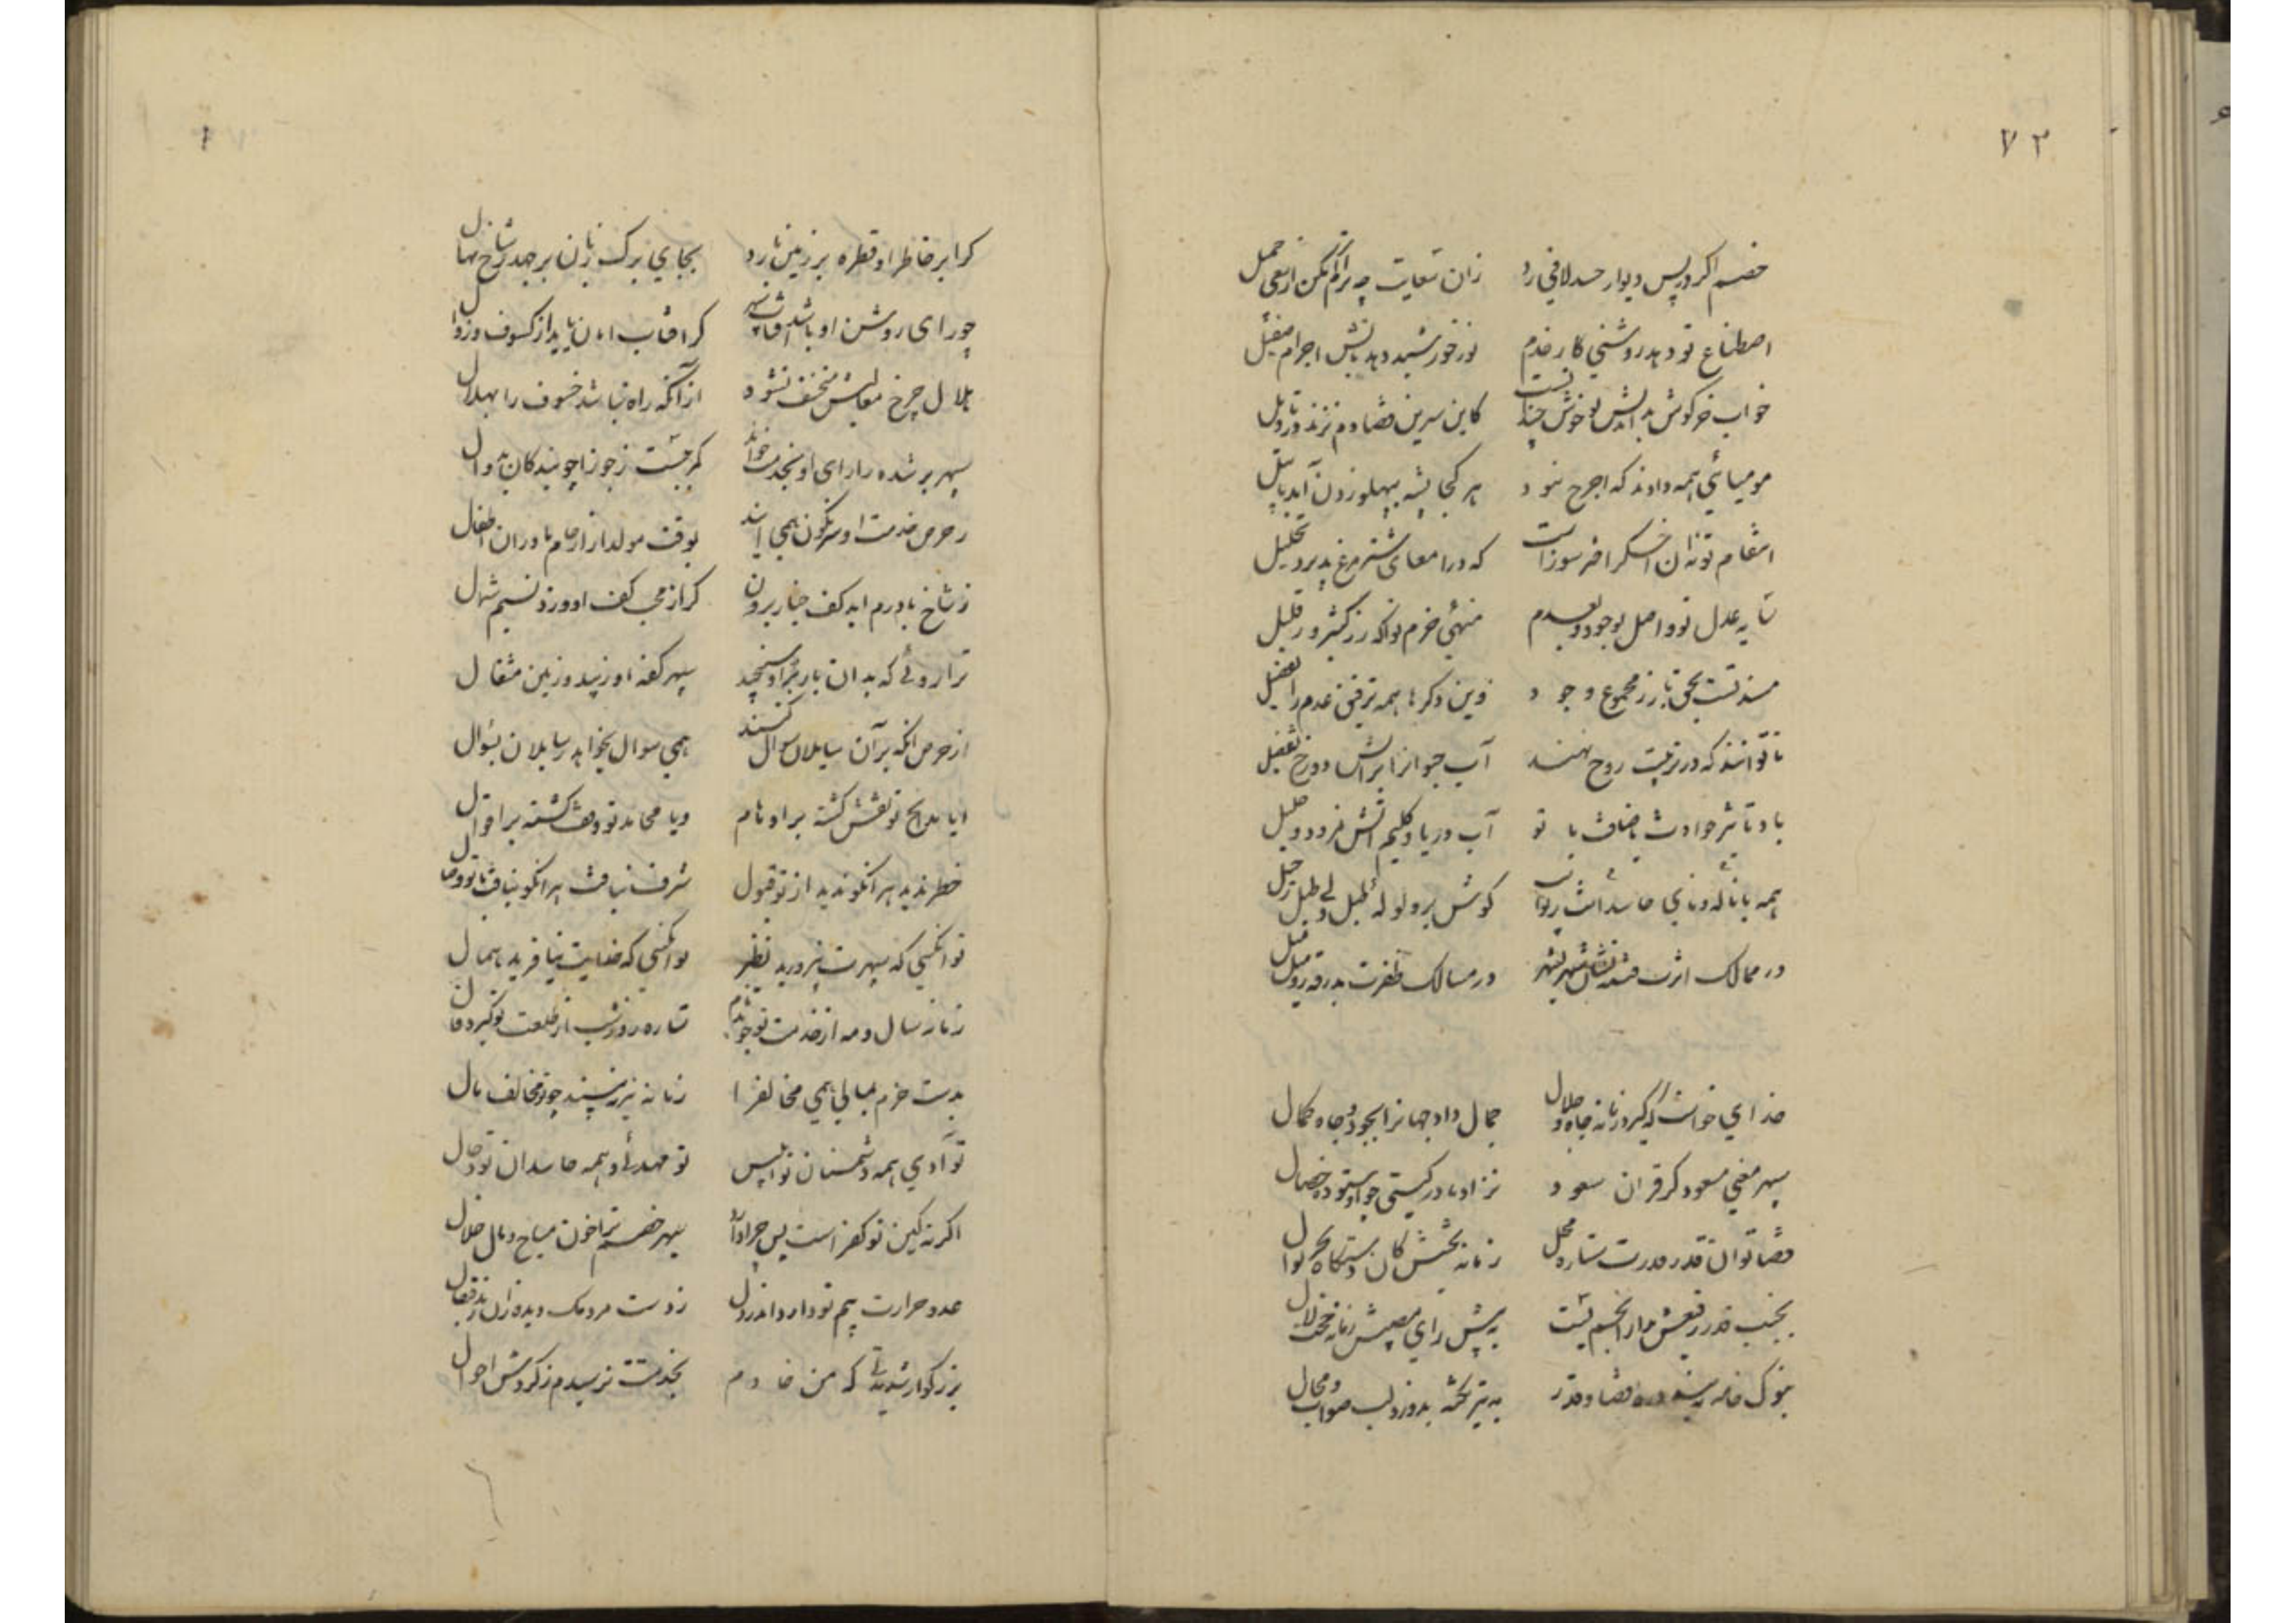 ۷۲
خصم اگر در پس دیوار حسد لافی زد زان سعایت چه
اصطناع تو دهد روشنی کار خدم نور خورشید دهد تابش اجرام صقیل
خواب خرکوش بداندیش تو خوش چندانست کاین سرین قضا دم نزند
مومیائی همه دادند که اجرح نبود هر کجا پشه بپهلو زدن آید با پیل
انتقام تو نه آن اخکر اخترسوز است که در امعای شترمرغ پذیرد تحلیل
تا به عدل تو واصل بوجود و بعدم منهی خرم تو آنکه رز کثیر و ز قلیل
مسند تست بحق بارز مجموع وجود وین دکرها همه ترقین عدم را تفضیل
تا توانند که در تربیت روح نهند آب حیوانرا بر آتش دوزخ تفضیل
باد تاثیر حوادث باضافت با تو آب دریا و کلیم آتش نمرود و خلیل
همه با ناله و نای حاسدانت کوش پر ولوله طبل
در ممالک اثرت در مسالک ظفرت بدرقه میل میل
خدای خواست که گیرد زمانه جاه و جلال جمال داد جهانرا بجود و جاه و کمال
سپهر معنی مسعود کز قران سعود نزاد مادر کیتی جو او ستوده خصال
قضا توان قدر قدرت ستاره محل زمانه بخشش کان دستگاه بحر نوال
بجنب قدر رفیعش مدار انجم پست به پیش رای مصیبش زبان حجت لال
بنوک خامه ببندد ره قضا و قدر به تیر نکته بدوزد لب صواب و محال
کر ابر خاطر او قطره بر زمین بارد بجای برک زبان بر جهد ز شاخ نهال
چو رای روشن او باشد آفتاب سپهر کر آفتاب امان یابد از کسوف و زوال
هلال چرخ معالیش منخسف نشود از آنکه راه نباشد خسوف را بهلال
سپهر برشده را رای او بخدمت خواند کمر ببست ز جوزا چو بندکان بدوال
ز حرص خدمت او سرنکون همی آیند بوقت مولد از ارحام مادران اطفال
ز شاخ بادرم آید کف چنار برون کر از مجی کف او ورزد نسیم شمال
ترازوئی که بدان بار بر او سنجند سپهر کفه او زیبد و زمین مثقال
از حرص آنکه بر آن سایلان سوال کنند همی سوال بخواهد ز سایلان بسوال
ایا مدایح تو نقش کشته بر اوهام ویا محامد تو وقف کشته بر اقوال
خطر ندید هر آنکو ندید از تو قبول شرف نیافت هر آنکو نیافت با تو وصال
تو آنکسی که سپهرت نپرورید نظیر تو آنکسی که خدایت نیافرید همال
زمانه سال و مه از خدمت تو جوید نام ستاره روز و شب از طلعت تو کیرد فال
بدست خرم بمالی همی مخالفرا زمانه نیز نبیند چو تو مخالف مال
تو آدمی همه دشمنان تو ابلیس تو مهدئی و همه حاسدان تو دجال
اگر نه کین تو کفر است پس چرا دارد سپهر خصم ترا خون مباح و مال حلال
عدو حرارت بیم تو دارد اندر دل
بزرگوارا شد مدتی که من خادم بخدمتت نرسیدم ز گردش احوال